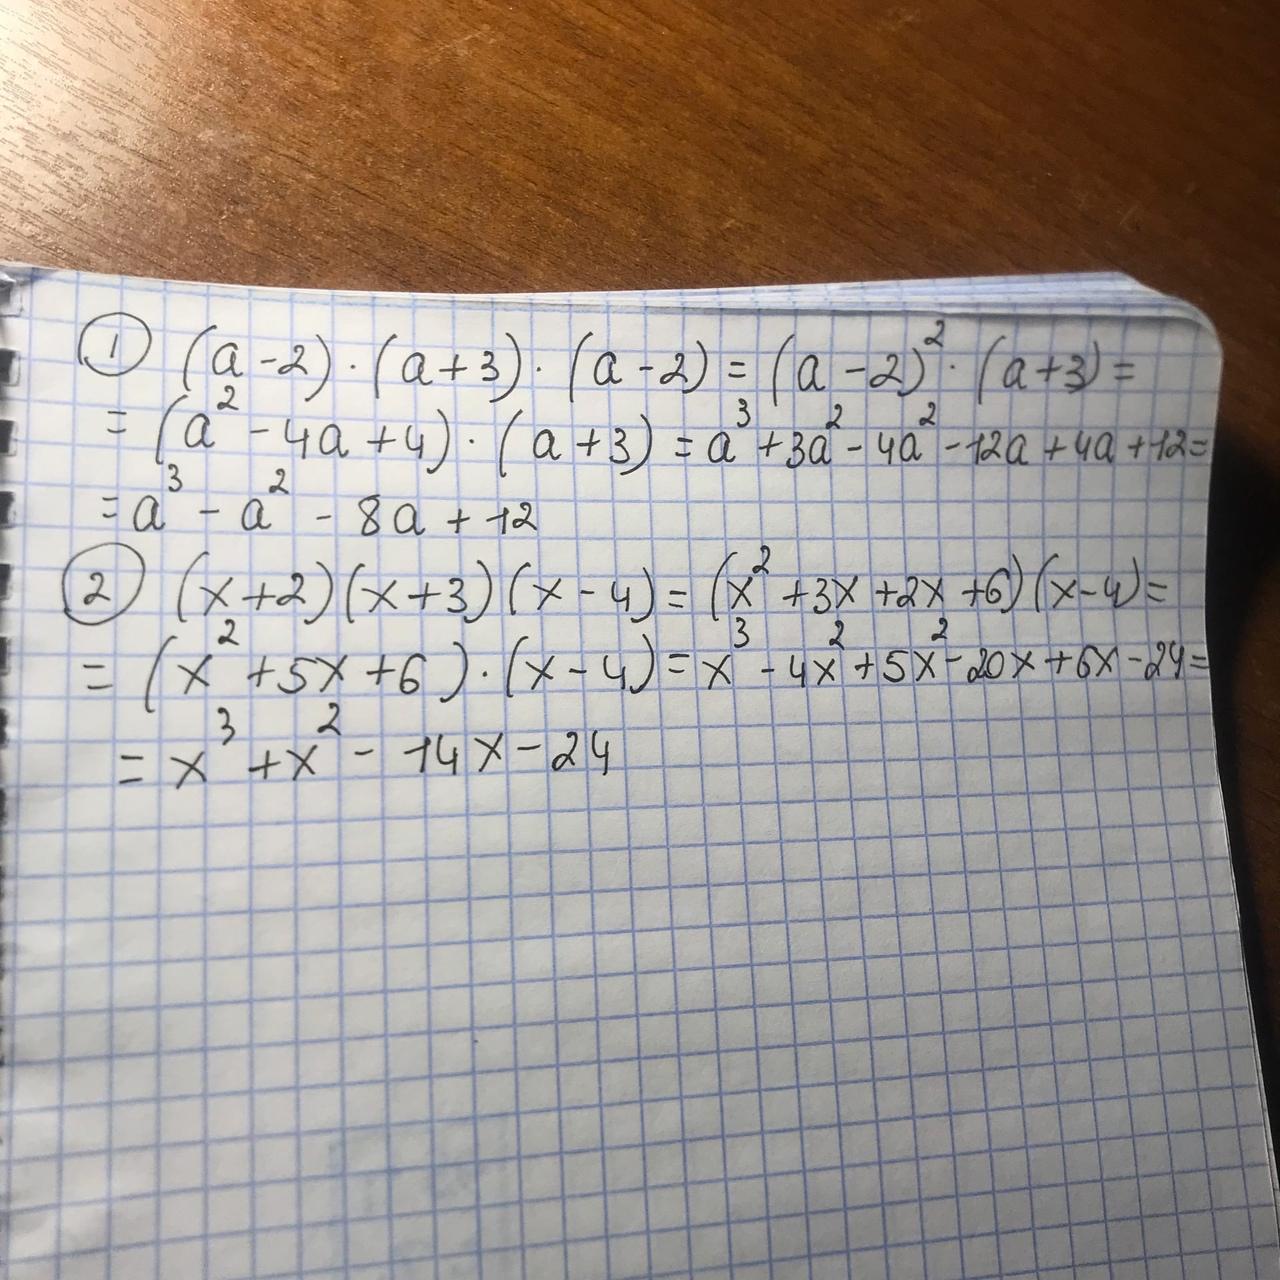 ① (a-2)·(a+3)·(a-2) = (a-2)²·(a+3) =
= (a²-4a+4)·(a+3) = a³+3a²-4a²-12a+4a+12=
= a³ - a² - 8a + 12
② (x+2)(x+3)(x-4) = (x²+3x+2x+6)(x-4)=
= (x²+5x+6)·(x-4) = x³-4x²+5x²-20x+6x-24=
= x³ + x² - 14x - 24